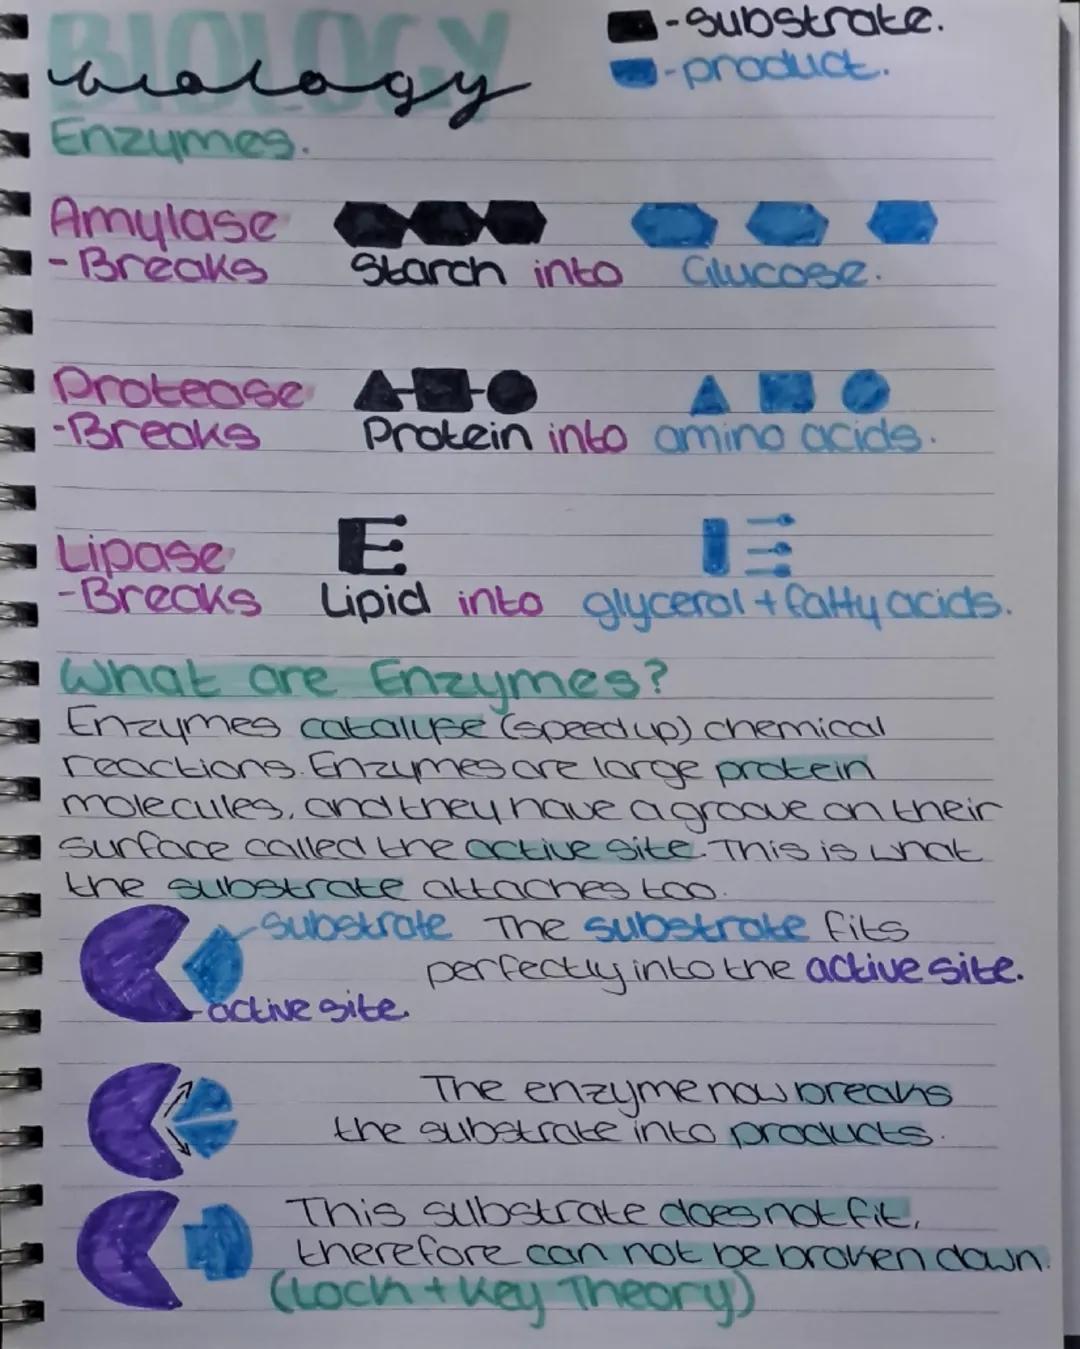 BIOLOGY
biology
-substrate.
-product.
Enzymes.
Amylase
-Breaks Starch into Glucose.
Protease
-Breaks Protein into amino acids.
Lipase
-Breaks Lipid into glycerol + fatty acids.
What are Enzymes?
Enzymes catalyse (speed up) chemical
reactions. Enzymes are large protein
molecules, and they have a groove on their
surface called the active site. This is what
the substrate attaches too.
substrate The substrate fits
perfectly into the active site.
active site.
The enzyme now breaks
the substrate into products.
This substrate does not fit,
therefore can not be broken down.
(Lock + Key Theory)